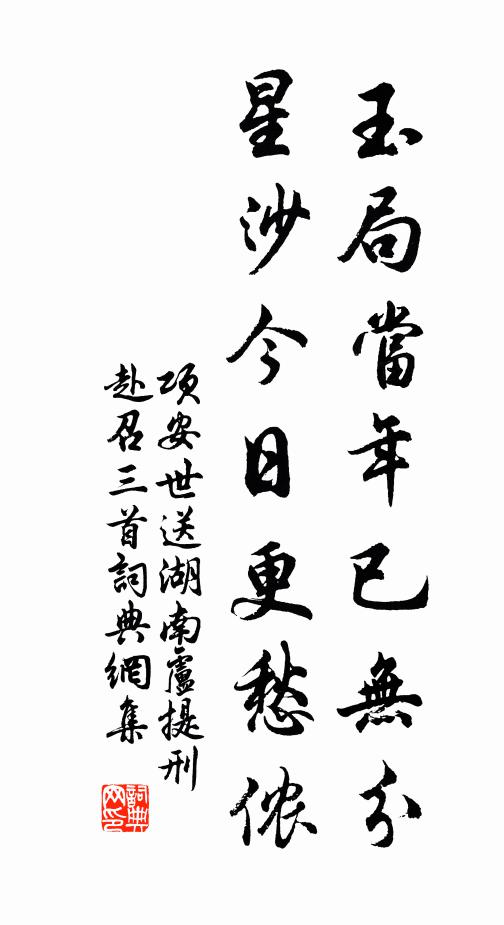 玉局當年已無分
星沙今日更愁侬
項安世送湖南盧提刑
赴召三首詞典網集
詞典网印